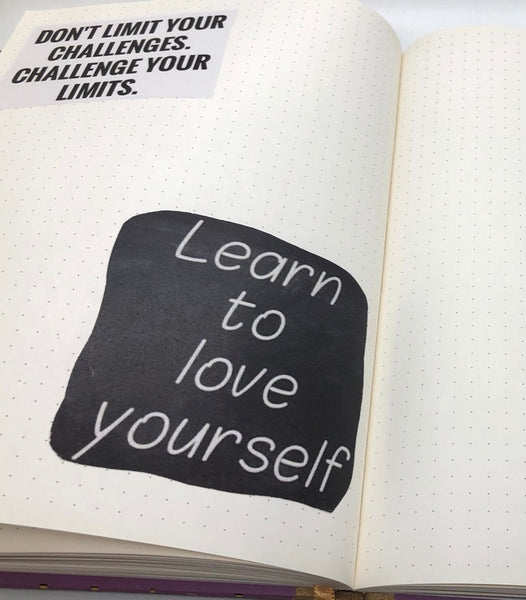 DON'T LIMIT YOUR
CHALLENGES.
CHALLENGE YOUR
LIMITS.
Learn
to
love
yourself